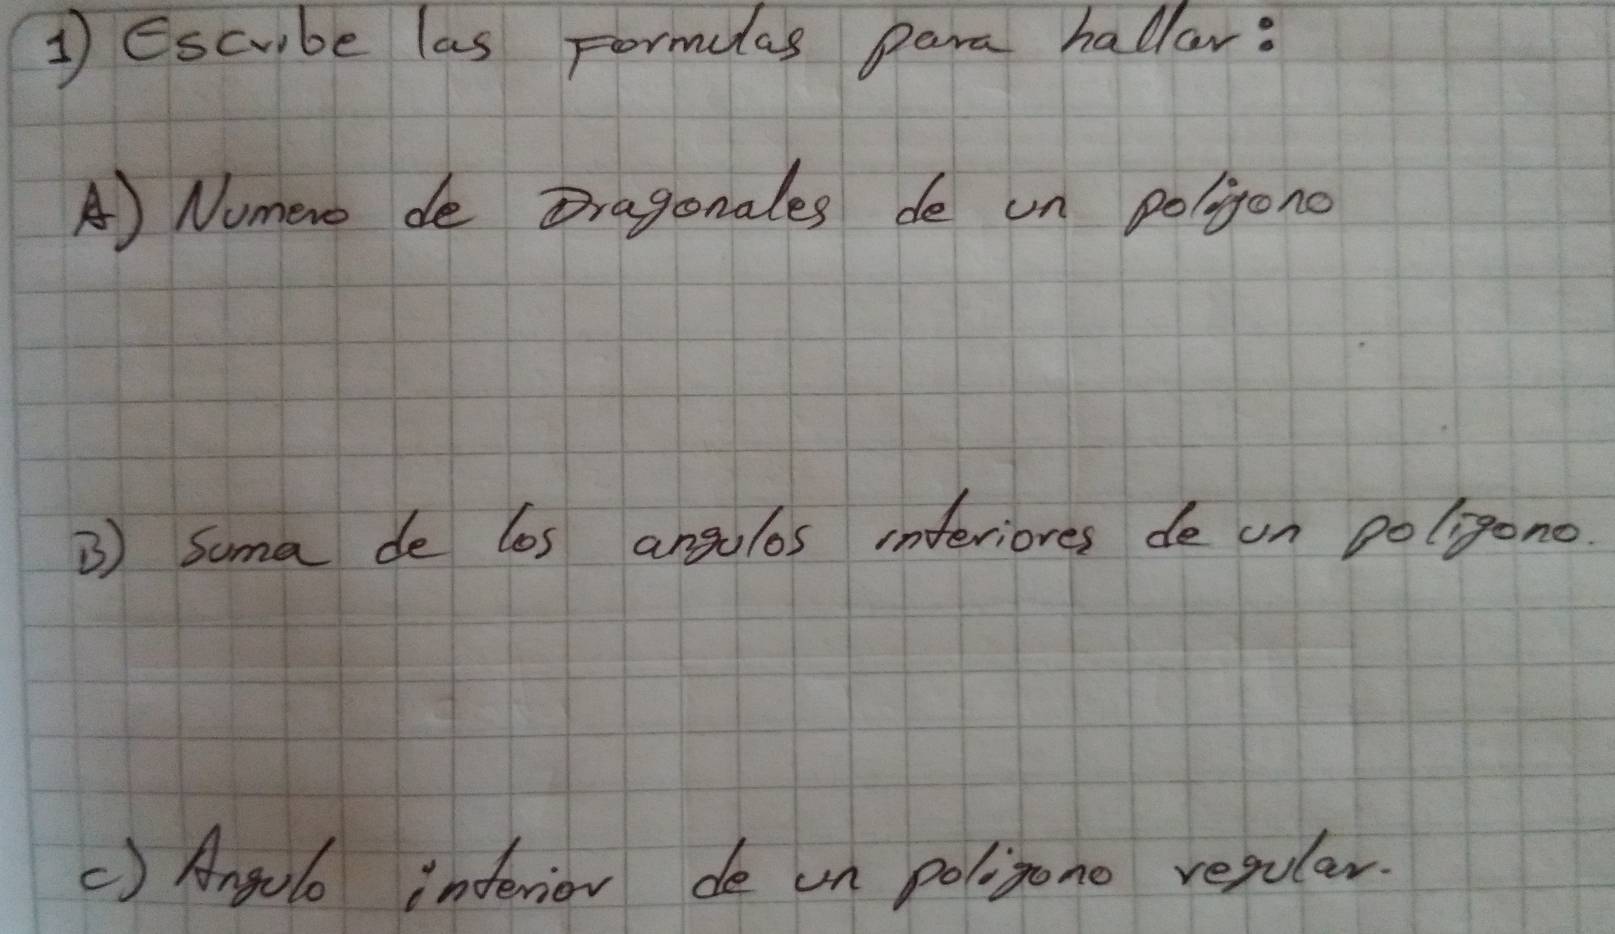 1) Escribe las Formulas para hallar:
A) Numero de Diagonales de un poligono
B) Suma de los angulos interiores de un poligono.
c) Angulo interior de un poligono regular.